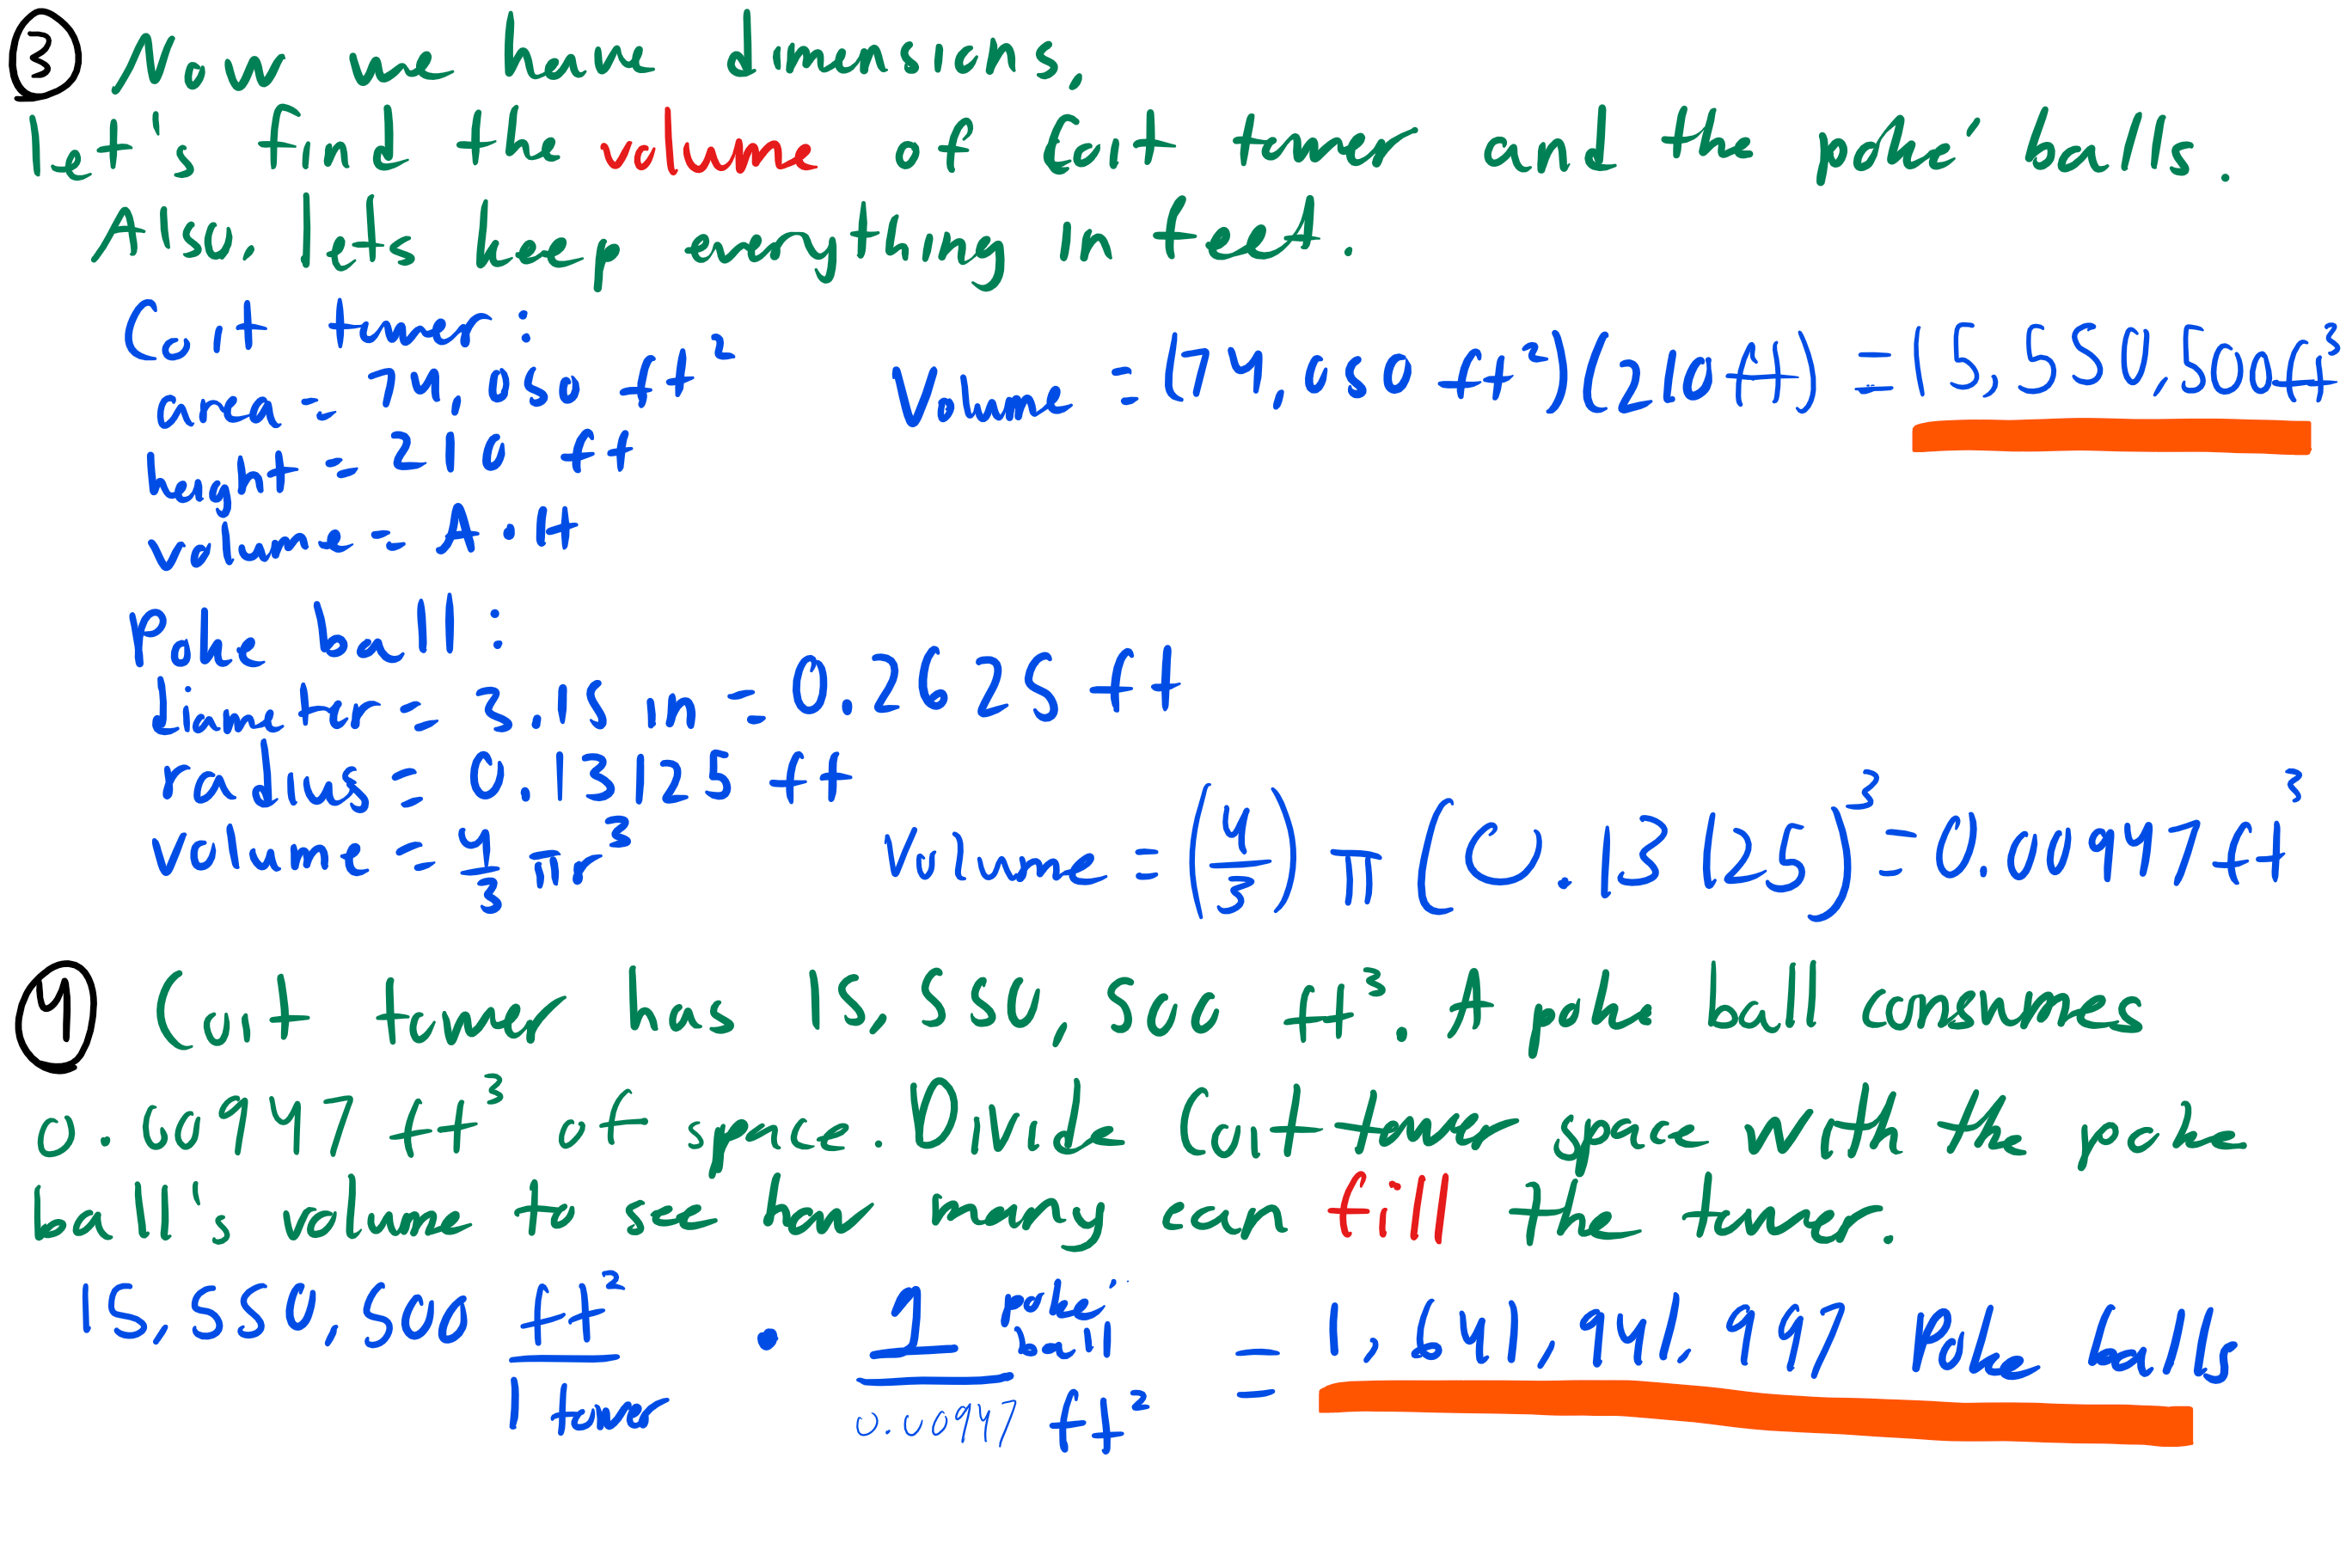 ③ Now we have dimensions,
Let's find the volume of Coit tower and the poké balls.
Also, lets keep everything in feet.
Coit tower:
area = 74,050 ft²
Volume = (74,050 ft²)(210 ft) = 15,550,500 ft³
height = 210 ft
volume = A · H
Poke ball:
Diameter = 3.15 in = 0.2625 ft
radius = 0.13125 ft
Volume = 4/3 πr³
Volume = (4/3) π (0.13125)³ = 0.00947 ft³
④ Coit tower has 15,550,500 ft³. A poke ball consumes
0.00947 ft³ of space. Divide Coit tower space with the poke
ball's volume to see how many can fill the tower.
15,550,500 ft³ / 1 tower · 1 poké ball / 0.00947 ft³ = 1,641,941,997 Poke balls